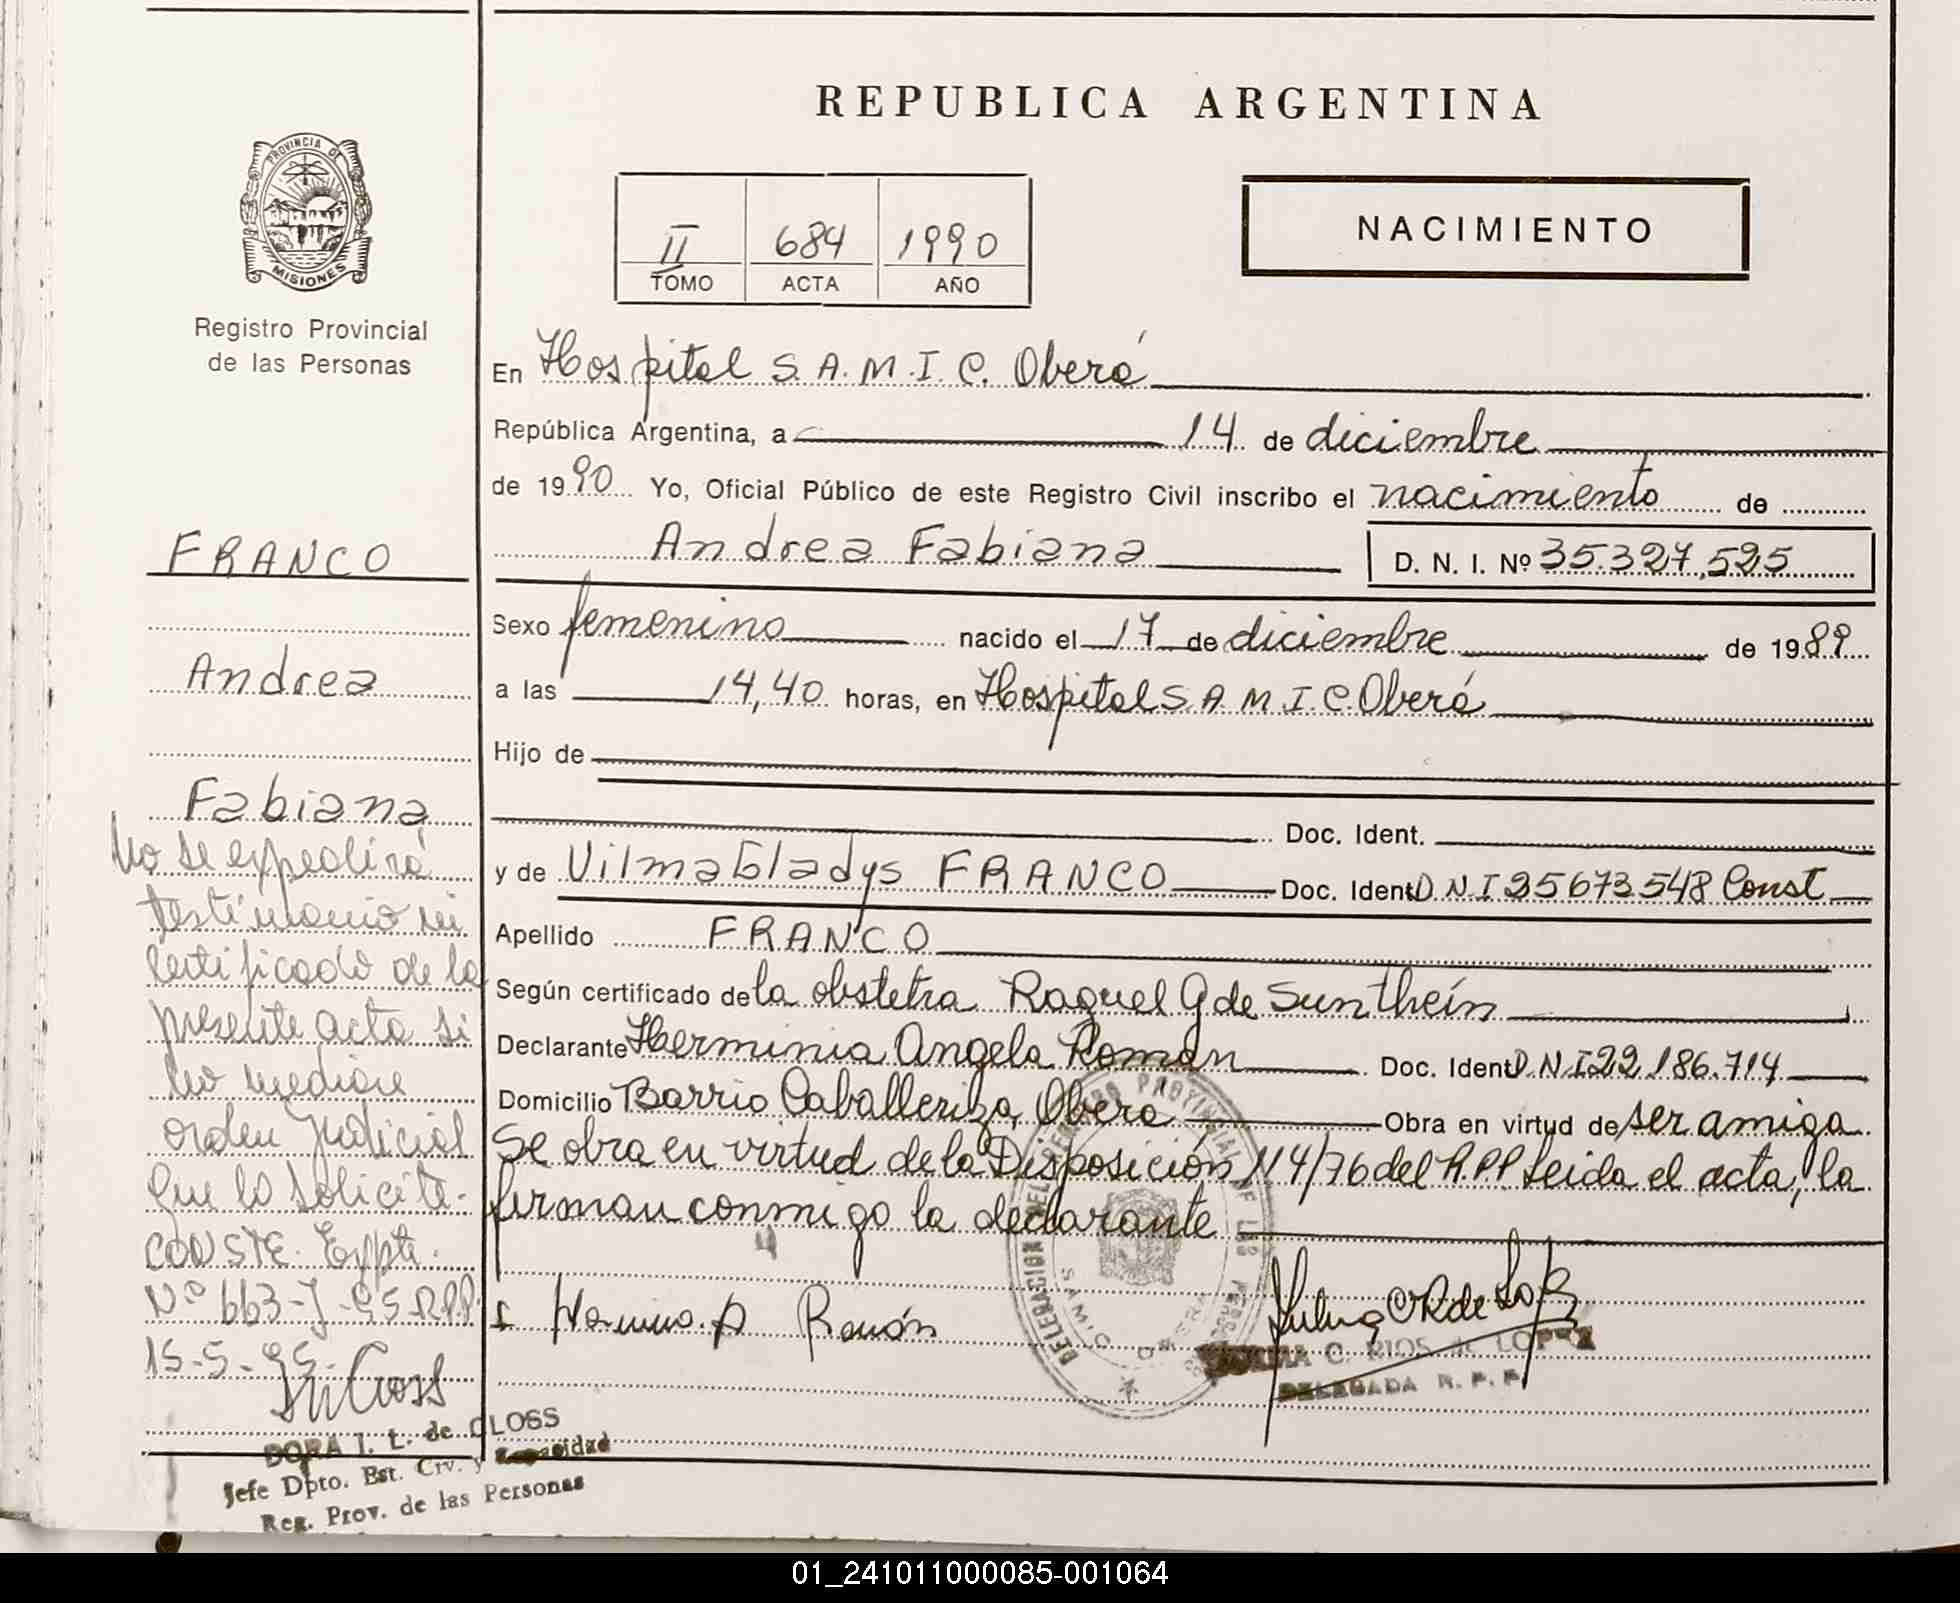 REPUBLICA ARGENTINA
PROVINCIA DE
MISIONES
Registro Provincial
de las Personas
II 684 1990
TOMO ACTA AÑO
NACIMIENTO
En Hospital S.A.M.I.C. Oberá
República Argentina, a 14 de diciembre
de 1990 Yo, Oficial Público de este Registro Civil inscribo el nacimiento de
Andrea Fabiana D. N. I. Nº 35.327.525
Sexo femenino nacido el 17 de diciembre de 1989
a las 14,40 horas, en Hospital S A M I C. Oberá
Hijo de
Doc. Ident.
y de Vilma Gladys FRANCO Doc. Ident D.N.I 25673548 Const
Apellido FRANCO
Según certificado de la obstetra Raquel G de Sunthein
Declarante Herminia Angela Román Doc. Ident D.N.I 22.186.714
Domicilio Barrio Caballeriza, Oberá Obra en virtud de ser amiga
Se obra en virtud de la Disposición N 4/76 del R.P.P. Leida el acta, la
firman conmigo la declarante
DELEGACION DEL REGISTRO PROVINCIAL DE LAS PERSONAS
SAMIC OBERA
C. RIOS de LOPEZ
DELEGADA R. P. P.
FRANCO
Andrea
Fabiana
No se expedirá
testimonio ni
certificado de la
presente acta si
no mediare
orden judicial
que lo solicite.
CONSTE. Expte.
Nº 663-J-95-R.P.P.
15-5-95.
DORA I. L. de CLOSS
Jefe Dpto. Est. Civ. y Capacidad
Reg. Prov. de las Personas
01_241011000085-001064